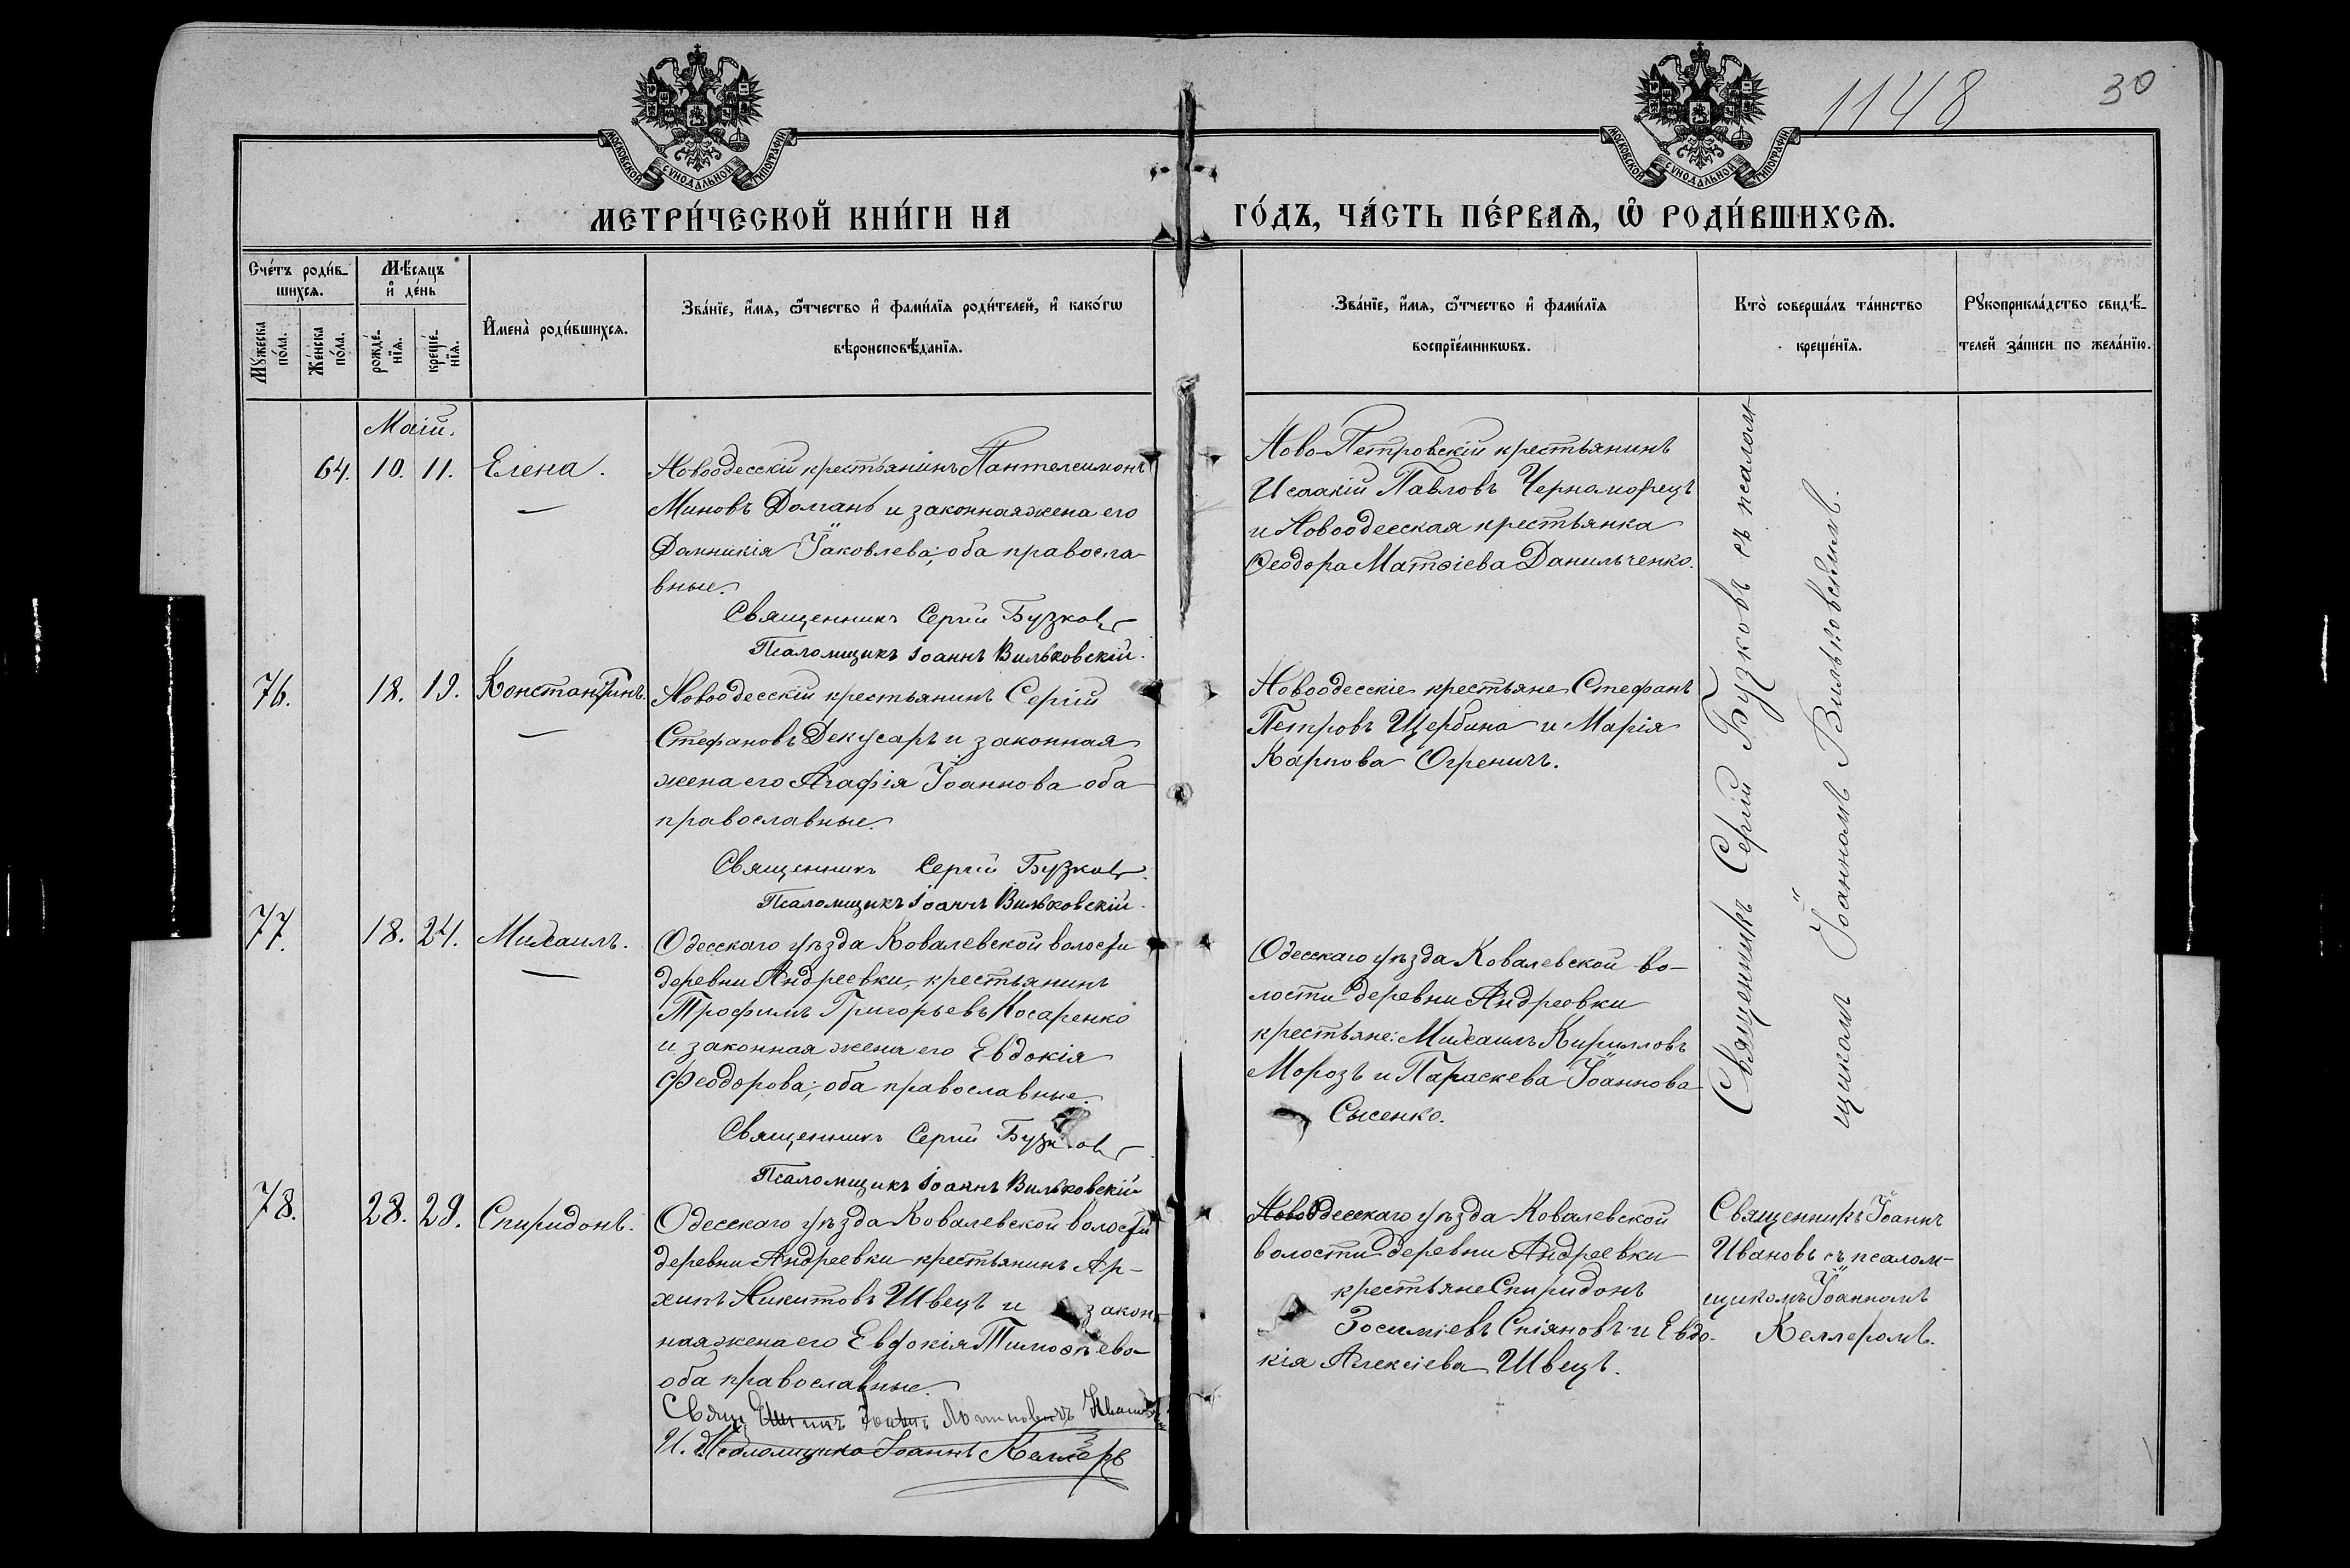 1148
30
МОСКОВСКОЙ СѴНОДАЛЬНОЙ ТИПОГРАФІИ
МОСКОВСКОЙ СѴНОДАЛЬНОЙ ТИПОГРАФІИ
МЕТРИ́ЧЕСКОЙ КНИ́ГИ НА ГО́ДЪ, ЧА́СТЬ ПЕ́РВАѦ, Ѡ҆ РОДИ́ВШИХСѦ.
Сче́тъ роди́в-
шихсѧ.
Мꙋжеска по́ла.
Же́нска по́ла.
Мѣ́сѧцъ
и҆ де́нь
рожде́-
нїѧ.
креще́-
нїѧ.
И҆мена̀ роди́вшихсѧ.
Зва́нїе, и҆́мѧ, ѻ҆́тчество и҆ фами́лїѧ роди́телей, и҆ како́гѡ
вѣроисповѣ́данїѧ.
Зва́нїе, и҆́мѧ, ѻ҆́тчество и҆ фами́лїѧ
воспрїе́мникѡвъ.
Кто̀ соверша́лъ та́инство
креще́нїѧ.
Рꙋкоприкла́дство свидѣ́-
телей за́писи по жела́нїю.
Маій.
64. 10. 11. Елена.
Новоодесскій крестьянинъ Пантелеимонъ
Миновъ Долганъ и законная жена его
Домникія Іаковлева; оба правосла-
вные.
Священникъ Сергій Бузковъ
Псаломщикъ Іоаннъ Вильковскій.
Ново-Петровскій крестьянинъ
Исаакій Павловъ Черноморецъ
и Новоодесская крестьянка
Ѳеодора Матѳіева Данильченко.
Священникъ Сергій Бузковъ съ псалом-
щикомъ Іоанномъ Вильковскимъ.
76. 18. 19. Константинъ.
Новоодесскій крестьянинъ Сергій
Стефановъ Декусаръ и законная
жена его Агафія Іоаннова оба
православные.
Священникъ Сергій Бузковъ.
Псаломщикъ Іоаннъ Вильковскій.
Новоодесскіе крестьяне Стефанъ
Петровъ Щербина и Марія
Карпова Огреничъ.
77. 18. 24. Михаилъ.
Одесскаго уѣзда Ковалевской волости
деревни Андреевки, крестьянинъ
Трофимъ Григорьевъ Косаренко
и законная жена его Евдокія
Феодорова; оба православные.
Священникъ Сергій Бузковъ
Псаломщикъ Іоаннъ Вильковскій
Одесскаго уѣзда Ковалевской во-
лости деревни Андреевки
крестьяне: Михаилъ Кирилловъ
Морозъ и Параскева Іоаннова
Сысенко.
78. 28. 29. Спиридонъ.
Одесскаго уѣзда Ковалевской волости
деревни Андреевки крестьянинъ Ар-
хипъ Никитовъ Швецъ и закон-
ная жена его Евдокія Тимоѳѣева
оба православные.
Священникъ Іоаннъ Ивановъ
И. д. Псаломщика Іоаннъ Келлеръ
Одесскаго уѣзда Ковалевской
волости деревни Андреевки
крестьяне Спиридонъ
и Евдо-
кія Алексіева Швецъ.
Священникъ Іоаннъ
Ивановъ съ псалом-
щикомъ Іоанномъ
Келлеромъ.